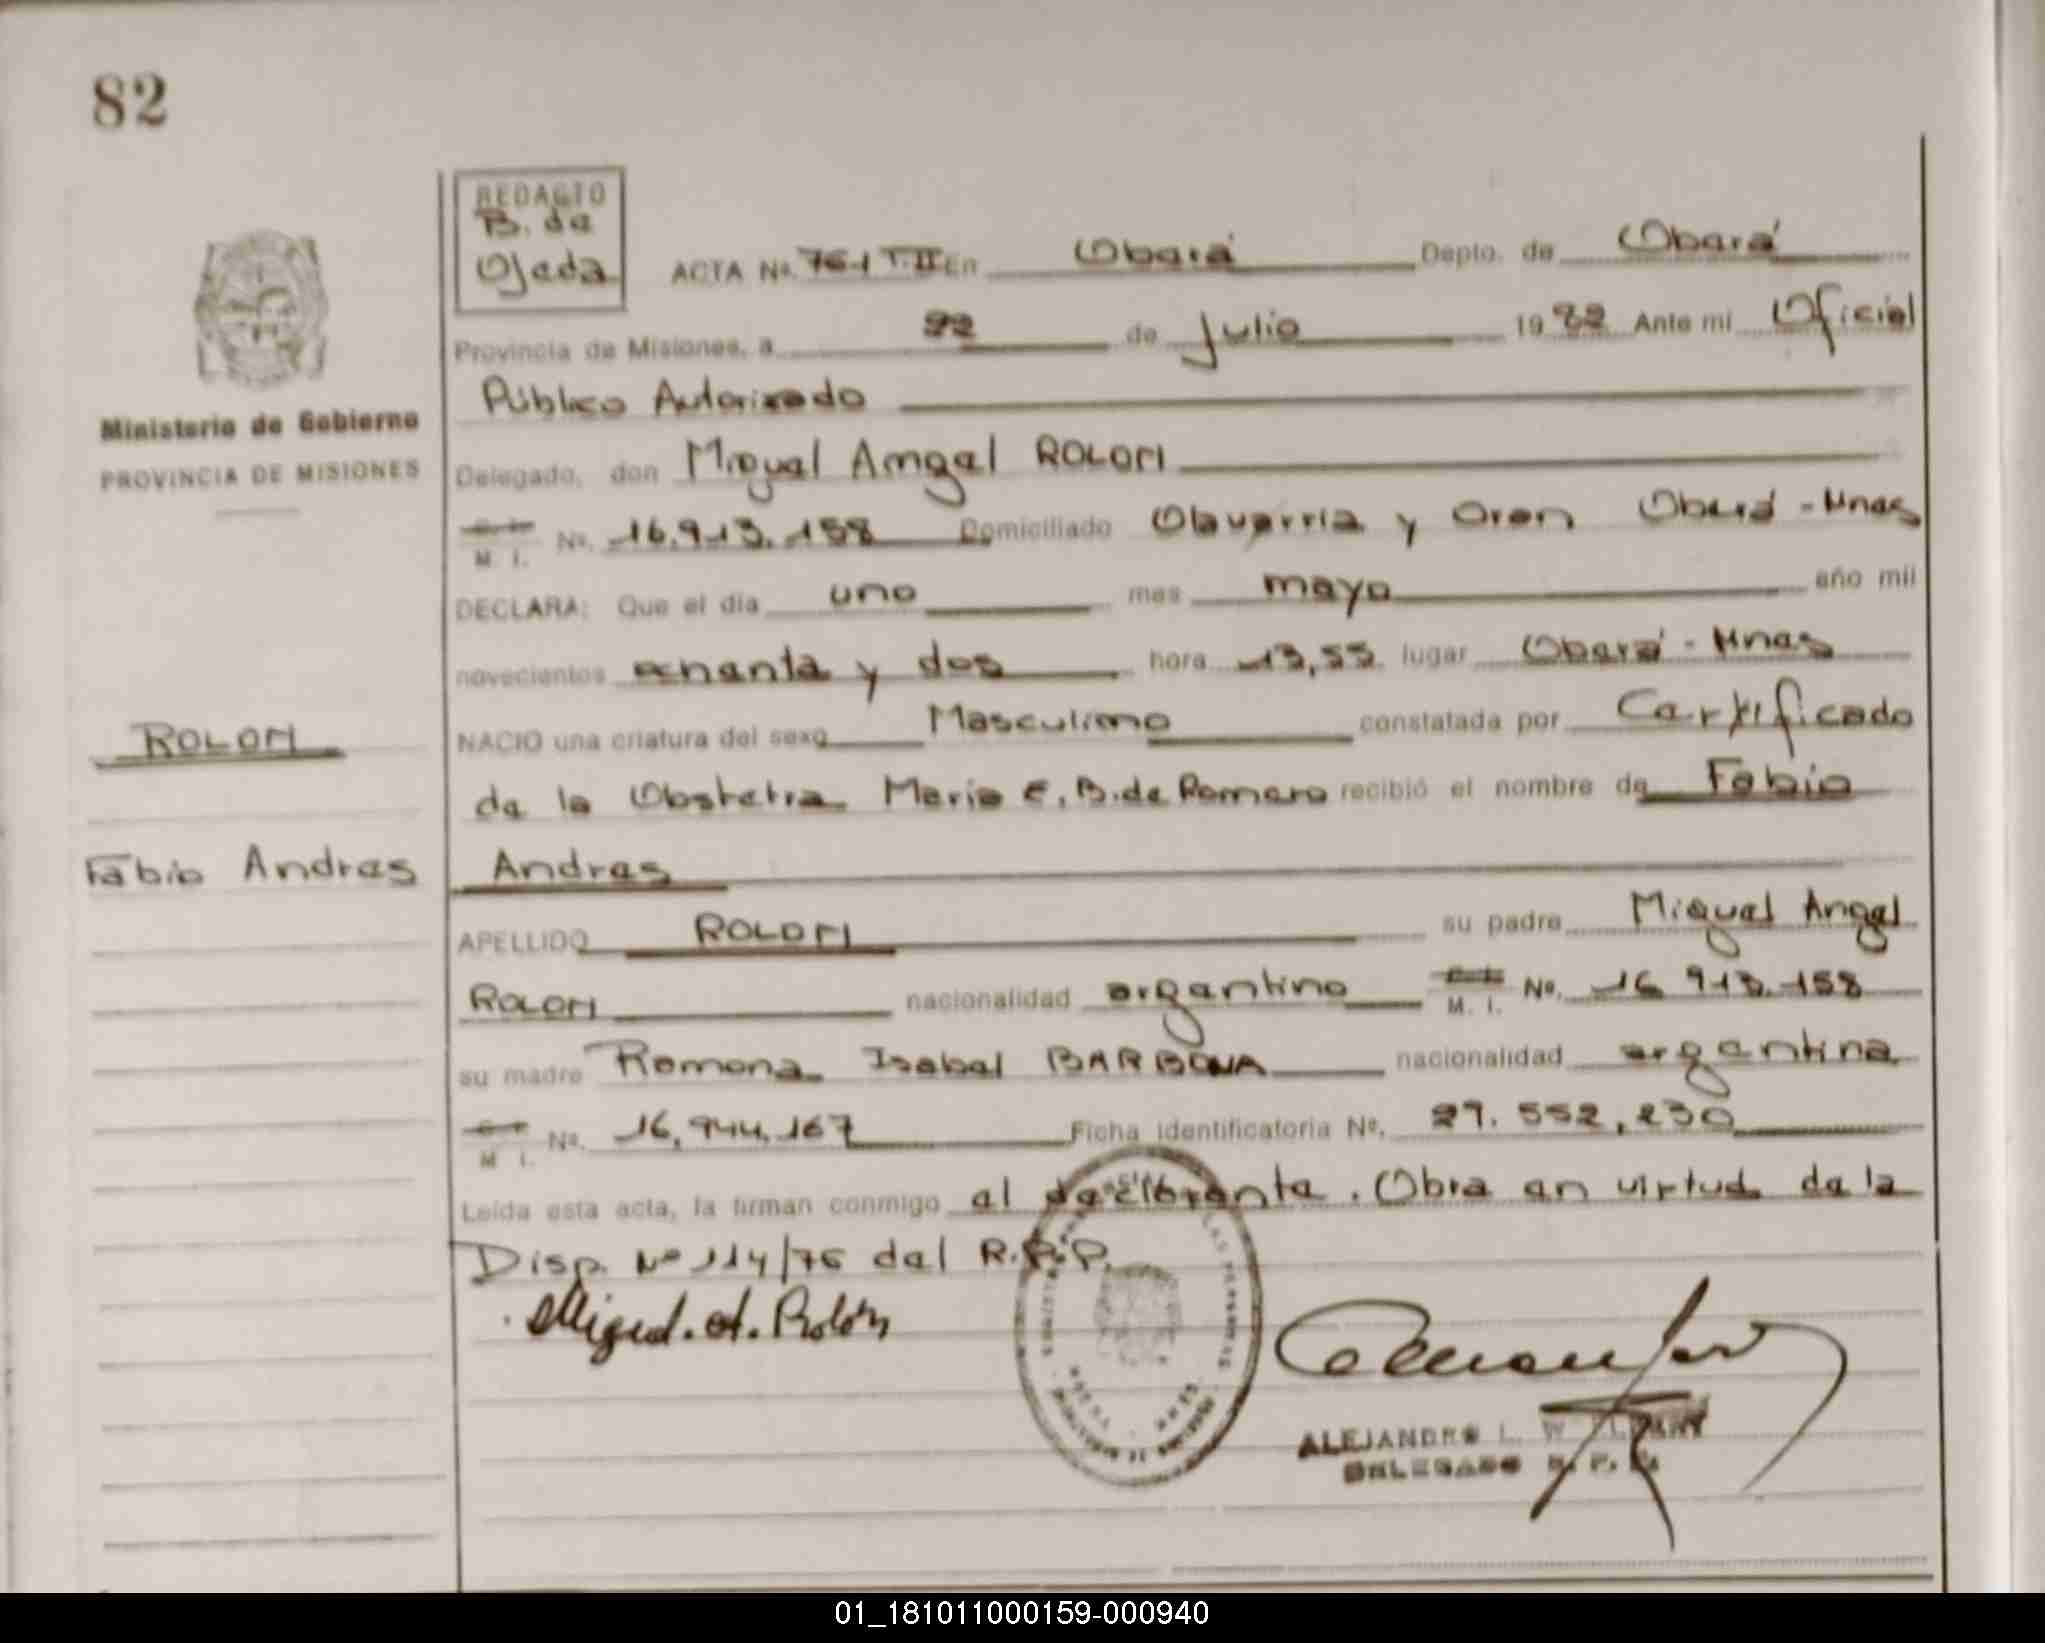 82
REDACTO
B. de
Ojeda
ACTA Nº 761 T.II En Oberá Depto. de Oberá
Provincia de Misiones, a 22 de Julio 1982 Ante mi Oficial
Público Autorizado
Delegado, don Miguel Angel ROLON
M. I. Nº. 16.913.158 Domiciliado Olavarria y Oran Oberá - Mnes
DECLARA: Que el día uno mes mayo año mil
novecientos ochenta y dos hora 13,55 lugar Oberá - Mnes
NACIO una criatura del sexo Masculino constatada por Certificado
de la Obstetra Maria E. B. de Romero recibió el nombre de Fabio
Andres
APELLIDO ROLON su padre Miguel Angel
ROLON nacionalidad argentino C. I. M. I. Nº. 16.913.158
su madre Ramona Isabel BARBOZA nacionalidad argentina
M. I. Nº. 16.944.167 Ficha identificatoria Nº. 29.552.230
Leída esta acta, la firman conmigo el declarante. Obra en virtud de la
Disp. Nº 114/76 del R.P.P.
Miguel. A. Rolón
ALEJANDRO L.
DELEGADO R. P. P.
Ministerio de Gobierno
PROVINCIA DE MISIONES
ROLON
Fabio Andres
01_181011000159-000940